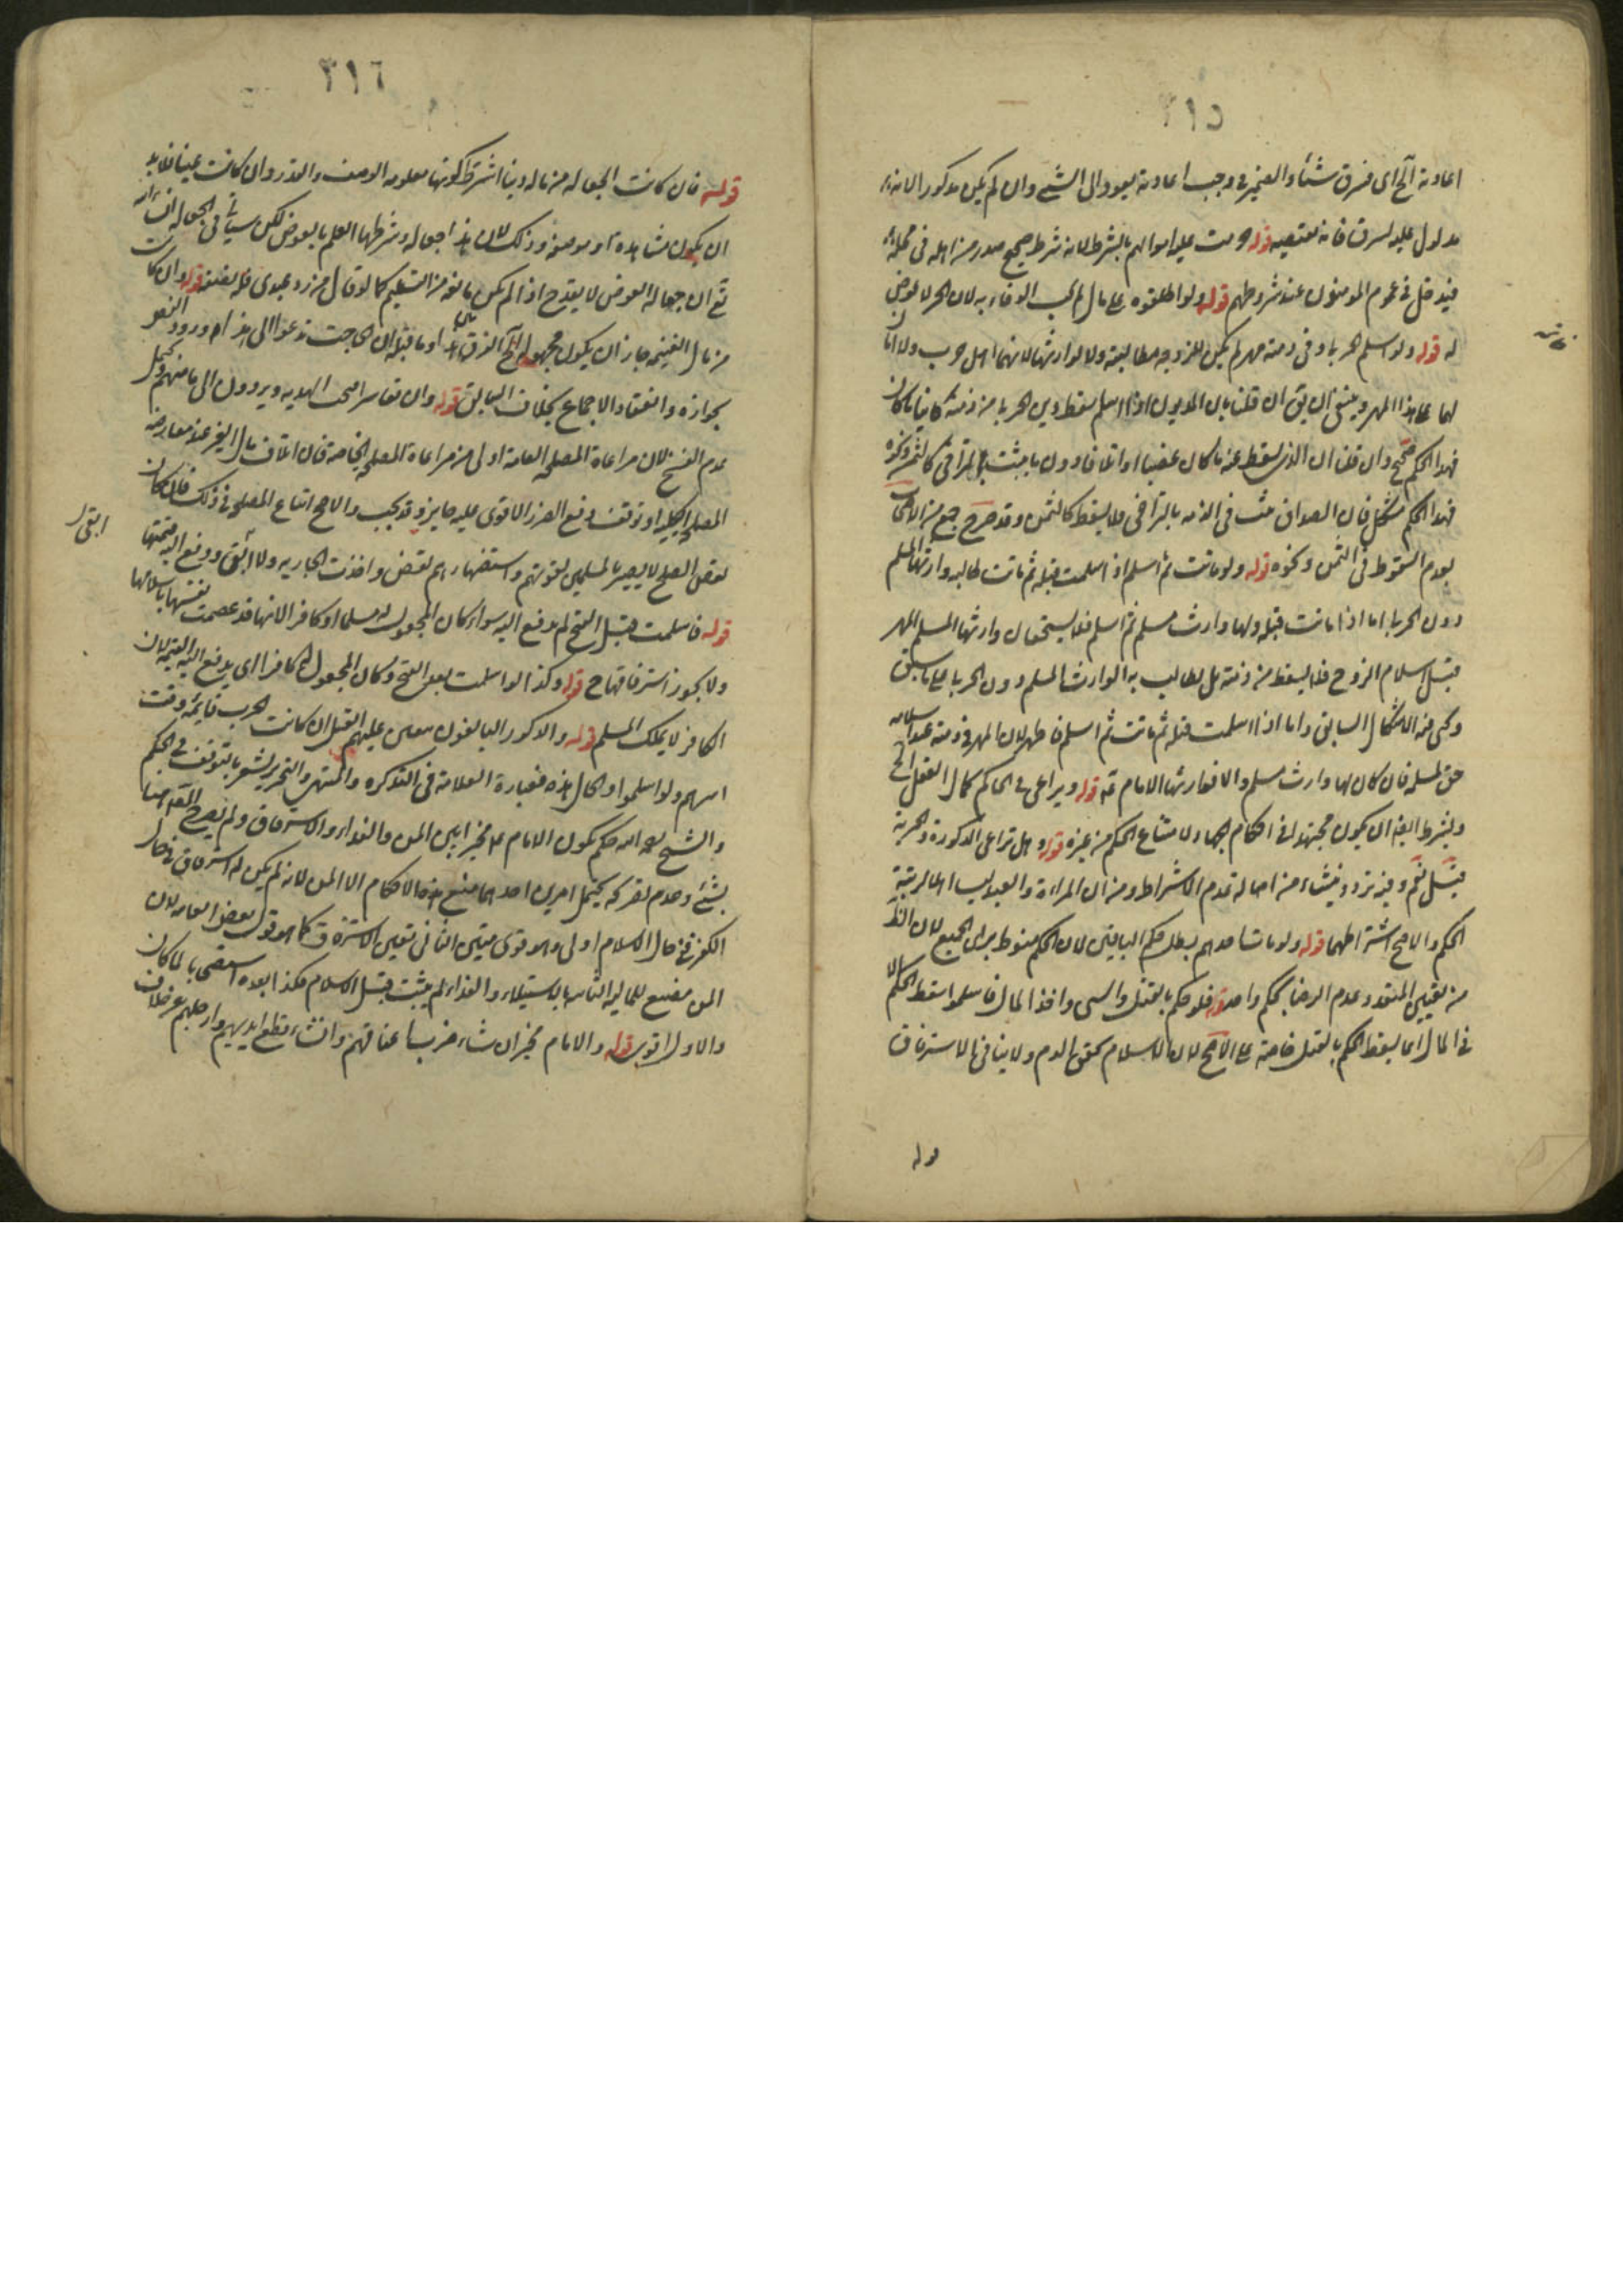 ٣١٥
اعادته الخ اى فسرق شيئا والضمير فى وجب اعادته يعود الى الشئ وان لم يكن مذكورا لانه
مدلول عليه لسرق فانه يقتضيه قوله وحرمت عليه اموالهم بالشرط لانه شرط صحيح صدر من اهله فى محله
فيدخل فى عموم المؤمنون عند شروطهم قوله ولو اطلقوه على مال لم يجب الوفاء به لان الحر لا عوض
له قوله ولو اسلم الحربى وفى ذمته مهر لم يكن للزوجة مطالبته ولا لوارثها لانهما اهل حرب ولا امان
لهما على هذا المهر وينبغى ان يق ان قلنا بان المديون اذا اسلم سقط دين الحربى من ذمته كائنا ما كان
فهذا الحكم صحيح وان قلنا ان الذى يسقط عنه ما كان غصبا او اتلافا دون ما يثبت بالتراضى كالثمن ونحوه
فهذا الحكم مشكل فان الصداق يثبت فى الذمة بالتراضى فلا يسقط كالثمن وقد صرح جمع من الاصحاب
بعدم السقوط فى الثمن ونحوه قوله ولو ماتت ثم اسلم او اسلمت قبله ثم ماتت طالبه وارثها المسلم
دون الحربى اما اذا ماتت قبله ولها وارث مسلم ثم اسلم فلا يستحق ان وارثها المسلم المهر
قبل اسلام الزوج فلا يسقط من ذمته بل يطالب به الوارث المسلم دون الحربى على ما سبق
وكى فيه الاشكال السابق واما اذا اسلمت قبله ثم ماتت ثم اسلم فاظهر لان المهر فى ذمته عند اسلامه
حق لمسلمة فان كان لها وارث مسلم والا فوارثها الامام قوله ويراعى فى الحاكم كمال العقل الخ
ويشترط ايضا ان يكون مجتهدا فى احكام الجهاد لامتناع الحكم من غيره قوله وهل تراعى الذكورة والحرية
قيل نعم وفيه تردد ينشاء من اصالة عدم الاشتراط ومن ان المراءة والعبد ليسا اهلا لرتبة
الحكم والاصح اشتراطهما قوله ولو مات احدهم بطل حكم الباقين لان الحكم منوط براى الجميع لان الظ
من تعيين المتعدد عدم الرضا بحكم واحد قوله فلو حكم بالقتل والسبى واخذ المال فاسلموا سقط الحكم الا
فى المال انما يسقط الحكم بالقتل خاصة على الاصح لان الاسلام يحقن الدم ولا ينافى الاسترقاق
قوله
٣١٦
قوله فان كانت الجعالة من ماله دينا اشترط كونها معلومة الوصف والقدر وان كانت عينا فلا بد
ان يكون مشاهدة او موصوفة وذلك لان هذا جعالة وشرطها العلم بالعوض لكن سيأتى فى الجعالة انشاء الله
تع ان جهالة العوض لا يقدح اذا لم يكن مانعة من التسليم كما لو قال من رد عبدى فله نصفه قوله وان كانت
من مال الغنيمة جاز ان يكون مجهولة الخ الفرق بين هذا وما قبله ان الحاجة تدعوا الى هذا وورود النص
بجوازه وانعقاد الاجماع بخلاف السابق قوله وان تعاسرا فسخت الهدنة ويردون الى مأمنهم ويحتمل
عدم الفسخ لان مراعاة المصلحة العامة اولى من مراعاة المصلحة الخاصة فان اتلاف مال الغير عند معارضة
المصلحة الكلية او توقف دفع الضرر الاقوى عليه جايز وقد يجب والاصح اتباع المصلحة فى ذلك فان كان
نقض الصلح لا يضر بالمسلمين لقوتهم واستظهارهم نقض واخذت الجارية ولا ابقى ودفع اليه قيمتها
قوله فاسلمت قبل الفتح لم تدفع اليه سواء كان المجعول له مسلما او كافرا لانها قد عصمت نفسها باسلامها
ولا يجوز استرقاقها ح قوله وكذا لو اسلمت بعد الفتح وكان المجعول له كافرا اى يدفع اليه القيمة لان
الكافر لا يملك المسلم قوله والذكور البالغون يتعين عليهم القتل ان كانت الحرب قايمة وقت
اسرهم ولو اسلموا والحال هذه فعبارة العلامة فى التذكرة والمنتهى والتحرير يشعر بالتوقف فى الحكم
والشيخ رحمه الله حكم بكون الامام مخيرا بين المن والفداء والاسترقاق ولم يصرح المص هنا
بشئ وعدم تعرضه يحتمل امرين احدهما منع هذه الاحكام الا المن لانه لم يكن له استرقاق فى حال
الكفر ففى حال الاسلام اولى وهو قوى متين الثانى تعين الاسترقاق كما هو قول بعض العامة لان
المن مضيع للمالية الثابتة بالاستيلاء والفداء لم يثبت قبل الاسلام فكذا بعده استصحابا لما كان
والاول اقوى قوله والامام مخير ان شاء ضرب اعناقهم وان شاء قطع ايديهم وارجلهم من خلاف
ابقى